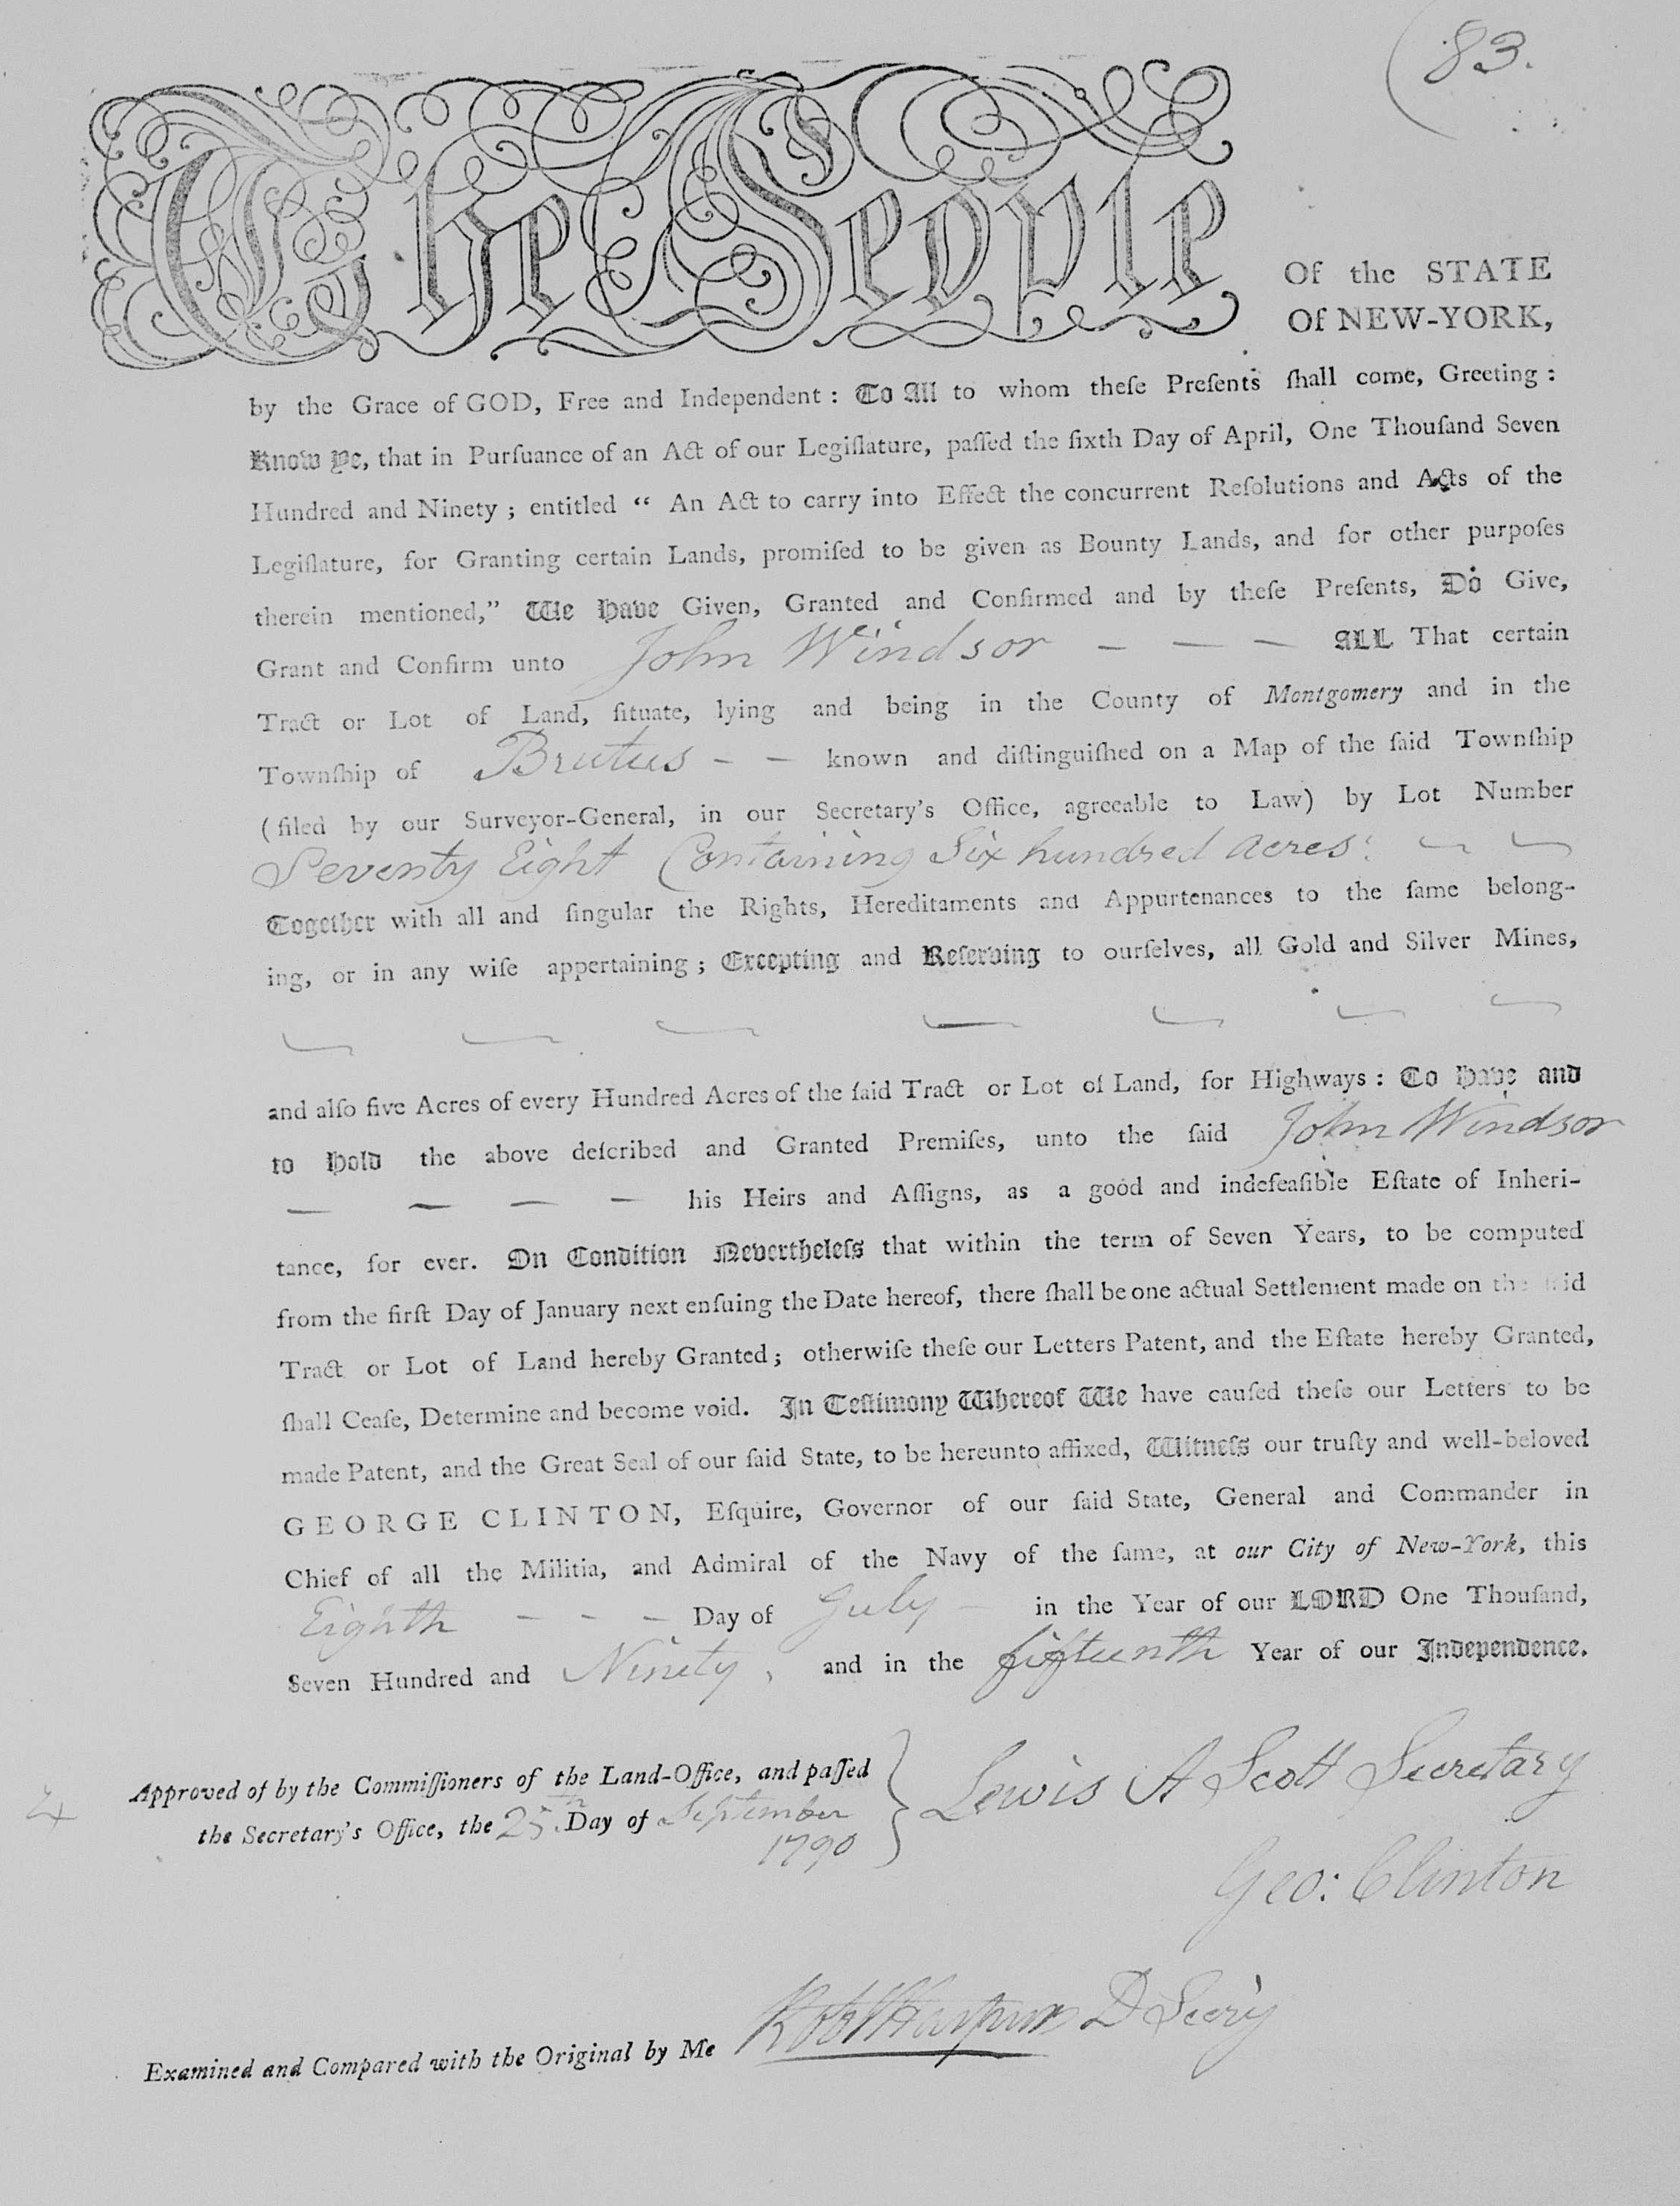 83.
The People
Of the STATE
Of NEW-YORK,
by the Grace of GOD, Free and Independent : To All to whom theſe Preſents ſhall come, Greeting :
Know Ye, that in Purſuance of an Act of our Legiſlature, paſſed the ſixth Day of April, One Thouſand Seven
Hundred and Ninety ; entitled “ An Act to carry into Effect the concurrent Reſolutions and Acts of the
Legiſlature, for Granting certain Lands, promiſed to be given as Bounty Lands, and for other purpoſes
therein mentioned,” We Have Given, Granted and Confirmed and by theſe Preſents, Do Give,
Grant and Confirm unto John Windsor — — — ALL That certain
Tract or Lot of Land, ſituate, lying and being in the County of Montgomery and in the
Township of Brutus - - known and diſtinguiſhed on a Map of the ſaid Townſhip
(filed by our Surveyor-General, in our Secretary’s Office, agreeable to Law) by Lot Number
Seventy Eight Containing Six hundred acres:
Together with all and ſingular the Rights, Hereditaments and Appurtenances to the ſame belong-
ing, or in any wiſe appertaining ; Excepting and Reſerving to ourſelves, all Gold and Silver Mines,
and alſo five Acres of every Hundred Acres of the ſaid Tract or Lot of Land, for Highways : To Have and
to Hold the above deſcribed and Granted Premiſes, unto the ſaid John Windsor
— — — — his Heirs and Aſſigns, as a good and indefeaſible Eſtate of Inheri-
tance, for ever. On Condition Nevertheleſs that within the term of Seven Years, to be computed
from the firſt Day of January next enſuing the Date hereof, there ſhall be one actual Settlement made on the ſaid
Tract or Lot of Land hereby Granted ; otherwiſe theſe our Letters Patent, and the Eſtate hereby Granted,
ſhall Ceaſe, Determine and become void. In Teſtimony Whereof We have cauſed theſe our Letters to be
made Patent, and the Great Seal of our ſaid State, to be hereunto affixed, Witneſs our truſty and well-beloved
GEORGE CLINTON, Eſquire, Governor of our ſaid State, General and Commander in
Chief of all the Militia, and Admiral of the Navy of the ſame, at our City of New-York, this
Eighth - - - Day of July - in the Year of our LORD One Thouſand,
Seven Hundred and Ninety, and in the fifteenth Year of our Independence.
Approved of by the Commiſſioners of the Land-Office, and paſſed
the Secretary’s Office, the 25th Day of September
1790
Lewis A Scott Secretary
Geo: Clinton
Examined and Compared with the Original by Me Robt Harpur D Secry